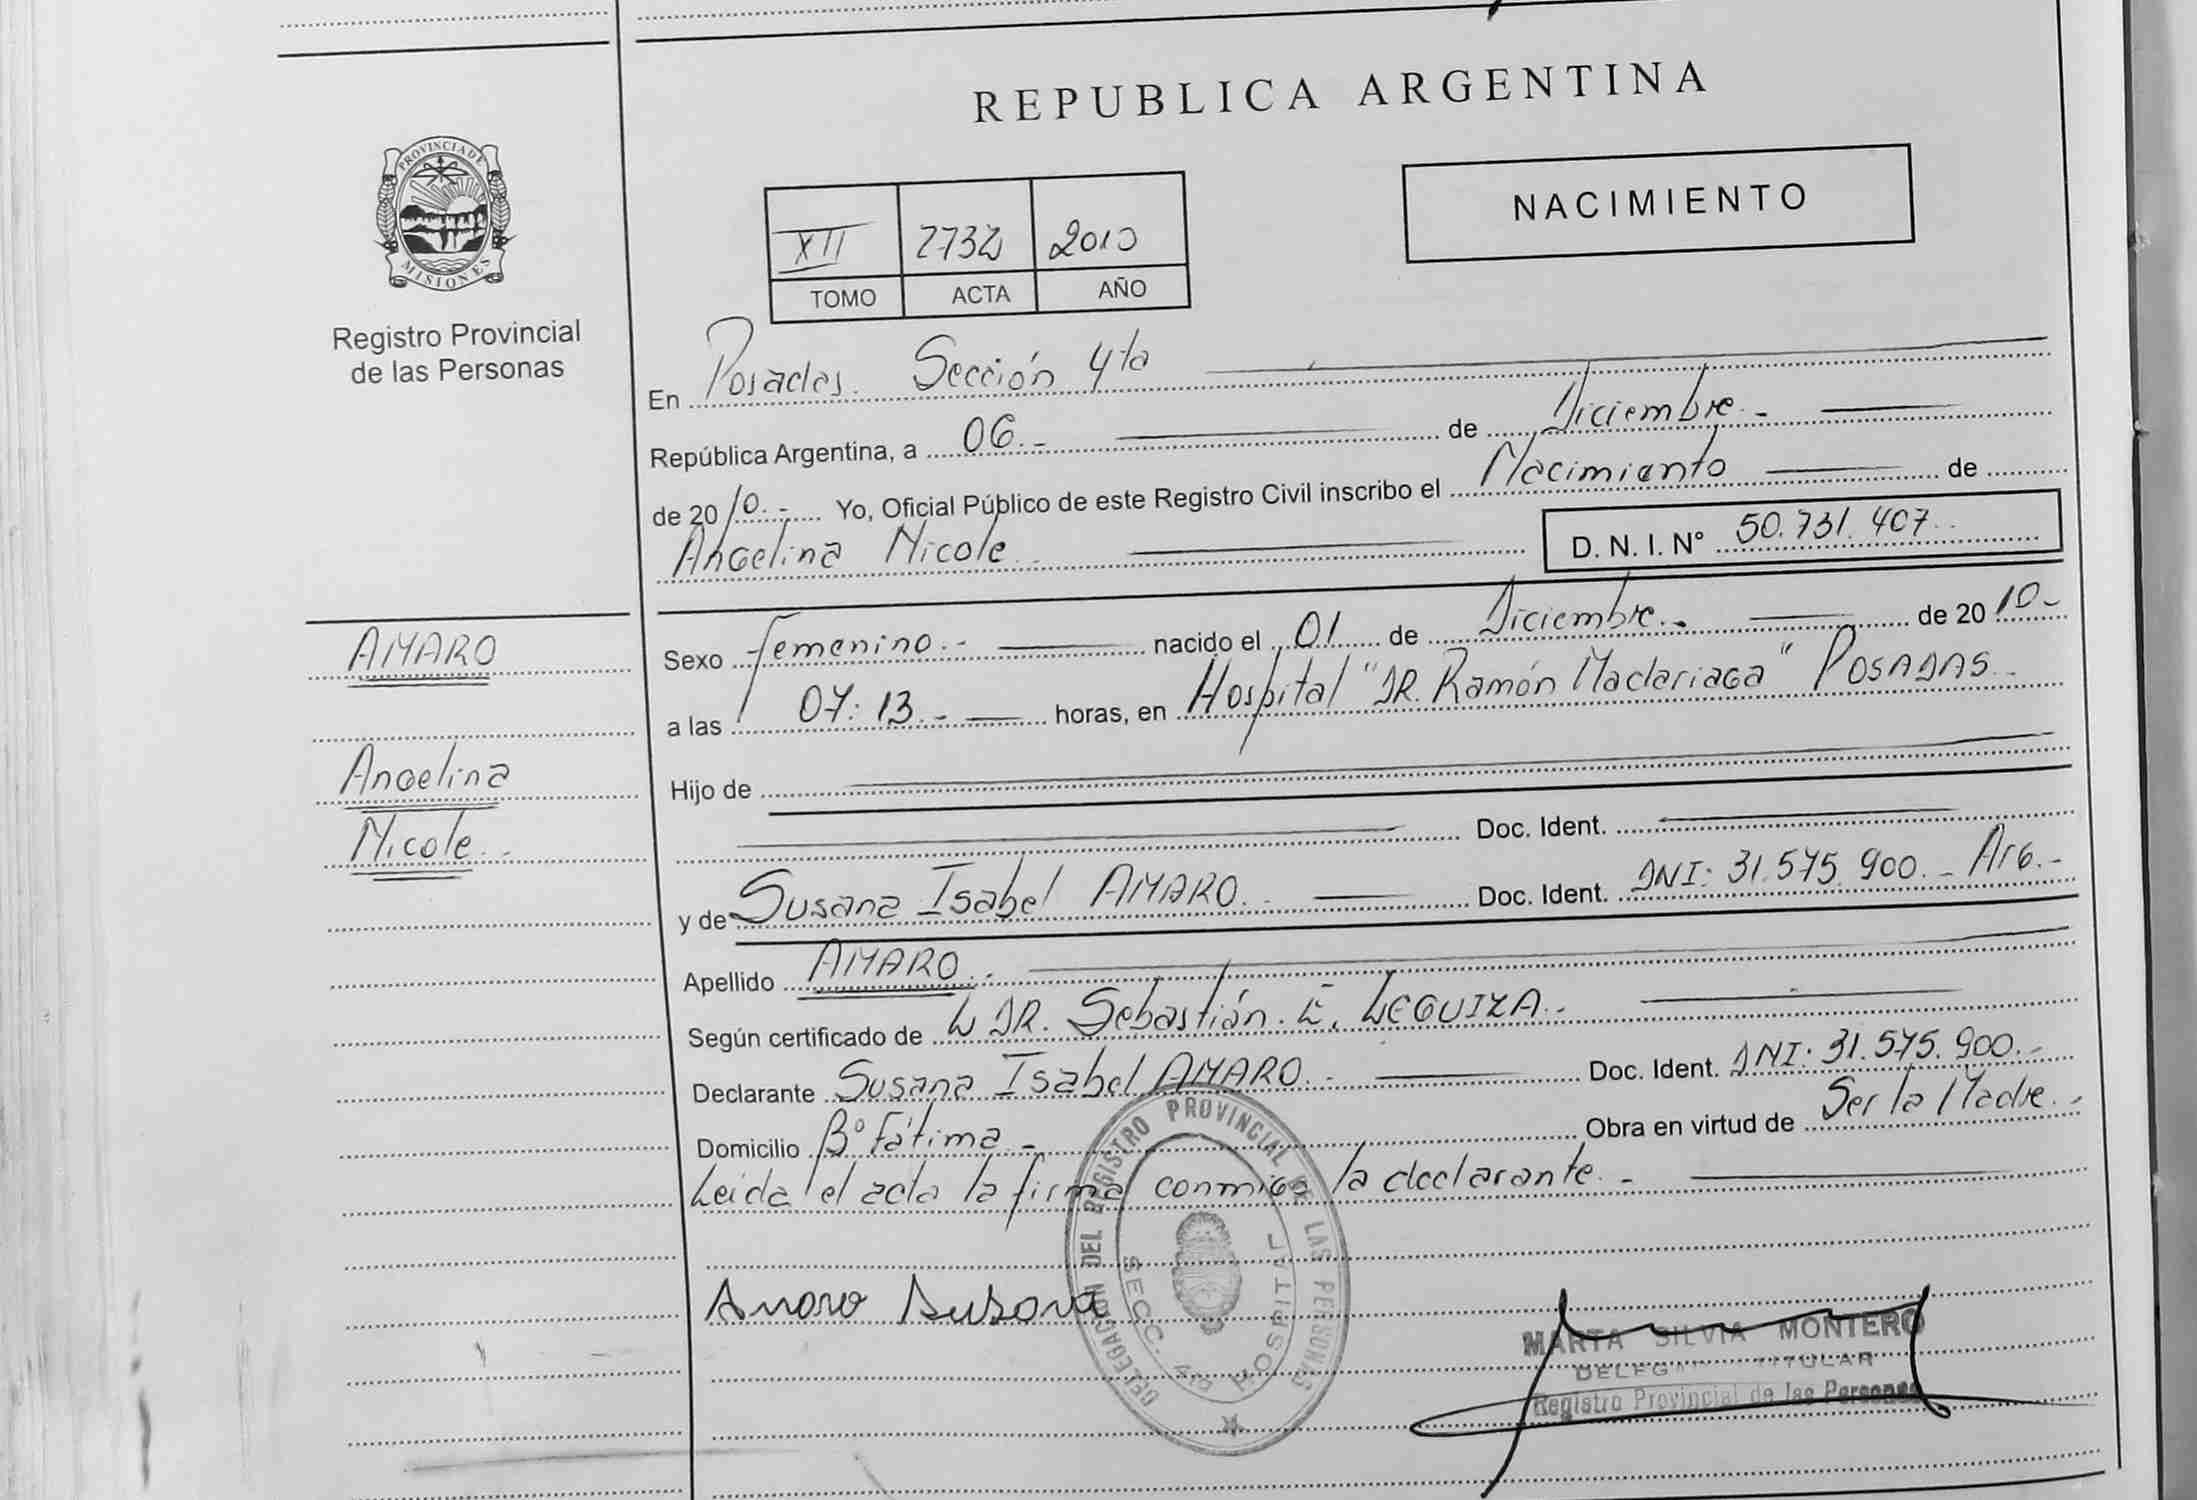 REPUBLICA ARGENTINA
PROVINCIA DE
MISIONES
Registro Provincial
de las Personas
NACIMIENTO
XII 2732 2010
TOMO ACTA AÑO
En Posadas. Sección 4ta
República Argentina, a 06.- de Diciembre.-
de 2010.- Yo, Oficial Público de este Registro Civil inscribo el Nacimiento de
Angelina Nicole.
D. N. I. Nº 50.731.407.-
AMARO
Angelina
Nicole.-
Sexo femenino.- nacido el 01 de Diciembre.- de 2010.-
a las 07:13.- horas, en Hospital "DR. Ramón Madariaga" POSADAS.-
Hijo de
Doc. Ident.
y de Susana Isabel AMARO.- Doc. Ident. DNI: 31.575.900.- Arg.-
Apellido AMARO.-
Según certificado de DR. Sebastián. E. LEGUIZA.-
Declarante Susana Isabel AMARO.- Doc. Ident. DNI: 31.575.900.-
Domicilio Bº Fátima.- Obra en virtud de Ser la Madre.-
Leida el acta la firma conmigo la declarante.-
Amaro Susana
DELEGACION DEL REGISTRO PROVINCIAL DE LAS PERSONAS
SECC. 4ta HOSPITAL
MARTA SILVIA MONTERO
TITULAR
Registro Provincial de las Personas